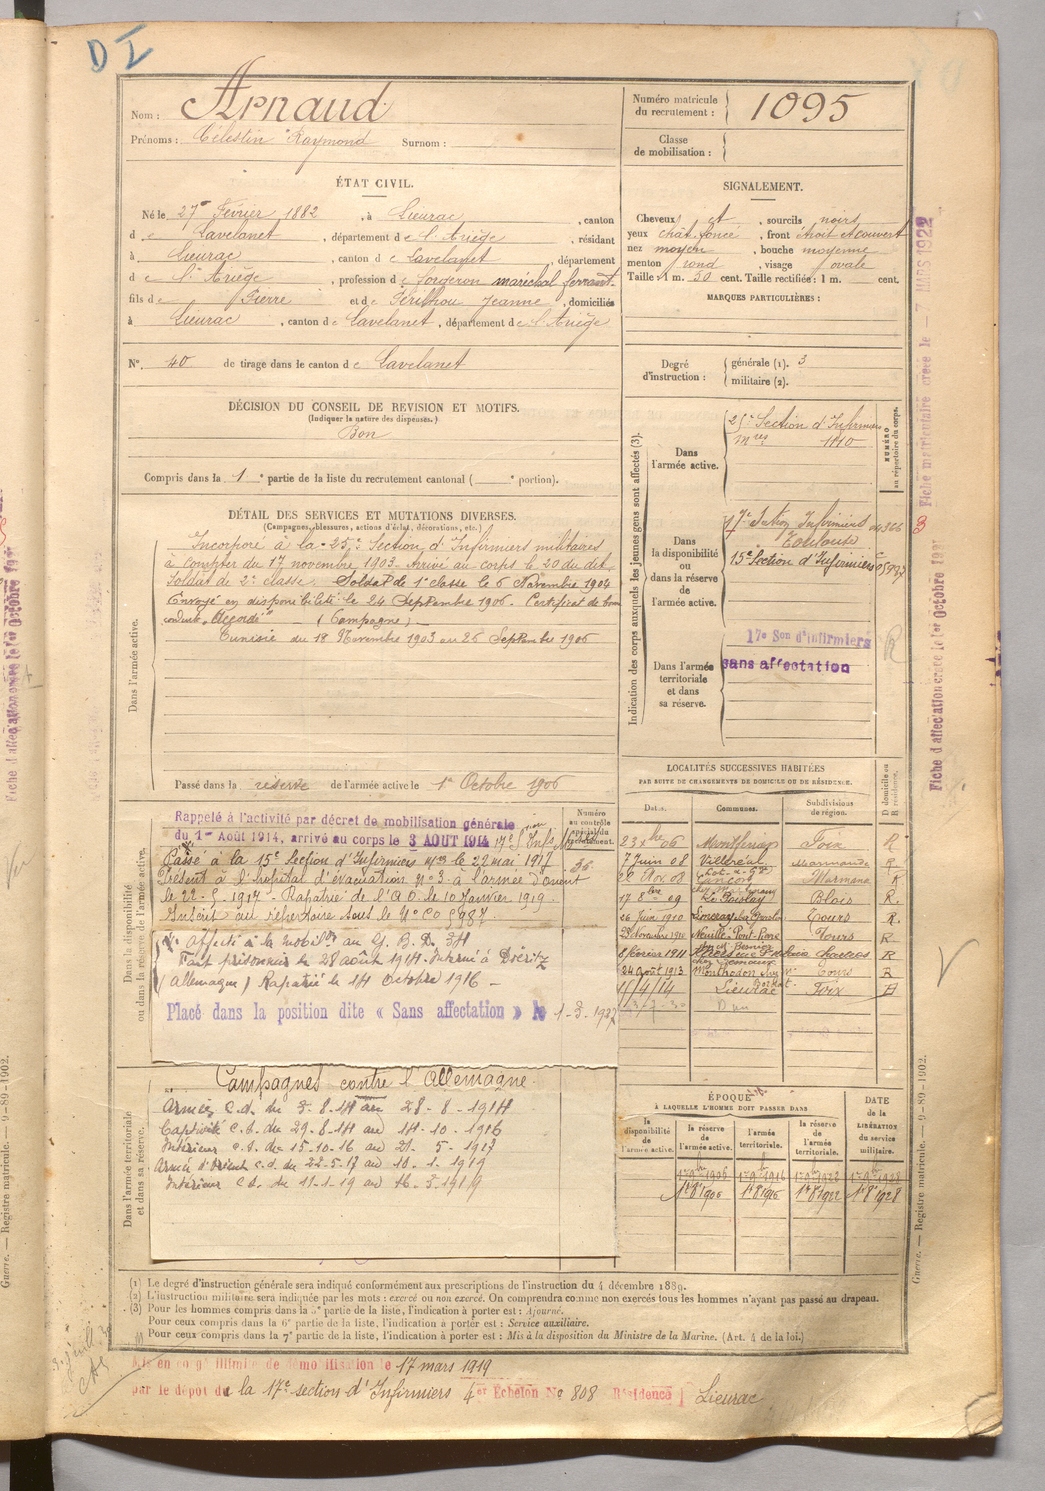 D I
Nom : Arnaud
Prénoms : Célestin Raymond Surnom :
Numéro matricule du recrutement : 1095
Classe de mobilisation :
ÉTAT CIVIL.
Né le 27 Février 1882, à Lieurac, canton
de Lavelanet, département de l'Ariège, résidant
à Lieurac, canton de Lavelanet, département
de l'Ariège, profession de forgeron maréchal ferrant
fils de Pierre et de Jeanne, domiciliés
à Lieurac, canton de Lavelanet, département de l'Ariège
N°. 40 de tirage dans le canton de Lavelanet
DÉCISION DU CONSEIL DE REVISION ET MOTIFS.
(Indiquer la nature des dispenses.)
Bon
Compris dans la 1e partie de la liste du recrutement cantonal ( e portion).
SIGNALEMENT.
Cheveux et, sourcils noirs
yeux chât. foncé, front étroit et couvert
nez moyen, bouche moyenne
menton rond, visage ovale
Taille : 1 m. 50 cent. Taille rectifiée : 1 m. cent.
MARQUES PARTICULIÈRES :
Degré d'instruction : générale (1). 3
militaire (2).
DÉTAIL DES SERVICES ET MUTATIONS DIVERSES.
(Campagnes, blessures, actions d'éclat, décorations, etc.)
Dans l'armée active.
Incorporé à la 25e Section d'Infirmiers militaires
à compter du 17 novembre 1903. Arrivé au corps le 20 du dit,
Soldat de 2e classe. Soldat de 1e classe le 6 Novembre 1904
Envoyé en disponibilité le 24 Septembre 1906. Certificat de bonne
conduite "Accordé" (Campagne)
Tunisie du 18 Novembre 1903 au 25 Septembre 1906
Passé dans la réserve de l'armée active le 1er Octobre 1906
Indication des corps auxquels les jeunes gens sont affectés (3).
NUMÉRO au répertoire du corps.
Dans l'armée active.
25e Section d'Infirmiers
mres 1110
Dans la disponibilité ou dans la réserve de l'armée active.
17e Section Infirmiers
Toulouse
15e Section d'Infirmiers
Dans l'armée territoriale et dans sa réserve.
17e Son d'infirmiers
sans affectation
Fiche matriculaire créée le 7 MARS 1922
Dans la disponibilité ou dans la réserve de l'armée active.
Numéro au contrôle spécial du recrutement.
36
Rappelé à l'activité par décret de mobilisation générale
du 1er Août 1914, arrivé au corps le 3 AOUT 1914
Passé à la 15e Section d'Infirmiers Mres le 22 mai 1917
Présent à l'hôpital d'évacuation n° 3 à l'armée d'Orient
le 22-5-1917 - Rapatrié de l'A O le 10 Janvier 1919
Inscrit au répertoire sous le N°
Affecté à la mobilon au G. B. D. 34
Fait prisonnier le 28 août 1914. Interné à
(Allemagne) Rapatrié le 14 Octobre 1916 -
Placé dans la position dite « Sans affectation » le 1-3-1932
Dans l'armée territoriale et dans sa réserve.
Campagnes contre l'Allemagne.
Armées c.d. du 3-8-14 au 28-8-1914
Captivité c.s. du 29-8-14 au 14-10-1916
Intérieur c.s. du 15-10-16 au 21-5-1917
Armée d'Orient c.d. du 22-5-17 au 10-1-1919
Intérieur c.s. du 11-1-19 au 16-3-1919
LOCALITÉS SUCCESSIVES HABITÉES
PAR SUITE DE CHANGEMENTS DE DOMICILE OU DE RÉSIDENCE.
Dates. Communes. Subdivisions de région. D domicile ou R résidence.
23 xbre 06 Montferrier Foix R
7 Juin 08 Villeréal Marmande R
26 Nov. 08 Cancon Marmande R
17 8bre 09 Blois R.
16 Juin 1910 Tours R.
23 Novembre 1910 Neuillé-Pont-Pierre Tours R
8 février 1911 R
24 août 1913 Monthodon Tours R
1/4/14 Lieurac Foix
Dun
ÉPOQUE
À LAQUELLE L'HOMME DOIT PASSER DANS
la disponibilité de l'armée active. la réserve de l'armée active. l'armée territoriale. la réserve de l'armée territoriale. DATE de la LIBÉRATION du service militaire.
1er 8bre 1906 1er 8 1916 1er 8 1922 1er 8 1928
(1) Le degré d'instruction générale sera indiqué conformément aux prescriptions de l'instruction du 4 décembre 1889.
(2) L'instruction militaire sera indiquée par les mots : exercé ou non exercé. On comprendra comme non exercés tous les hommes n'ayant pas passé au drapeau.
(3) Pour les hommes compris dans la 5e partie de la liste, l'indication à porter est : Ajourné.
Pour ceux compris dans la 6e partie de la liste, l'indication à porter est : Service auxiliaire.
Pour ceux compris dans la 7e partie de la liste, l'indication à porter est : Mis à la disposition du Ministre de la Marine. (Art. 4 de la loi.)
Mis en congé illimité de démobilisation le 17 mars 1919
par le dépôt de la 17e section d'Infirmiers 4er Echelon No 808 Résidence Lieurac
Guerre. — Registre matricule. — 9-89-1902.